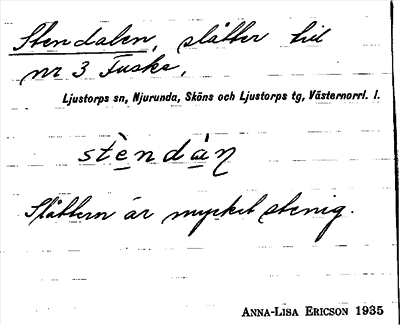 Stendalen, slåtter till
nr 3 Fuske,
Ljustorps sn, Njurunda, Sköns och Ljustorps tg, Västernorrl. l.
stèndàŋ
Slåttern är mycket stenig.
ANNA-LISA ERICSON 1935